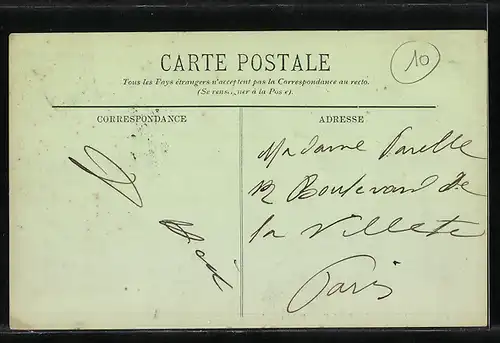 CARTE POSTALE
10
Tous les Pays étrangers n'acceptent pas la Correspondance au recto.
(Se renseigner à la Poste).
CORRESPONDANCE
ADRESSE
Madame
12 Boulevard de
la Villette
Paris